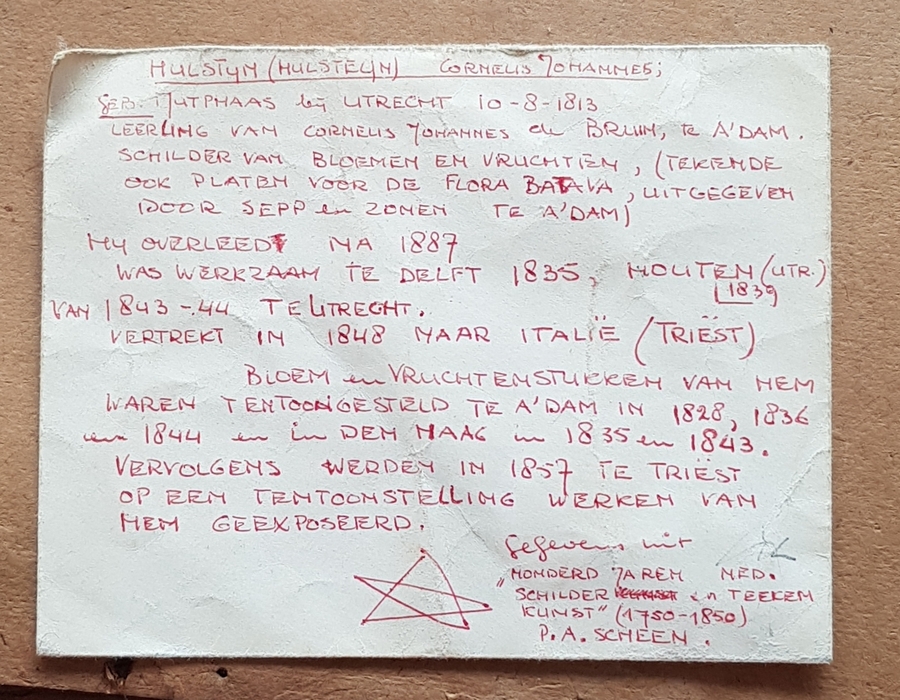 HULSTIJN (HULSTEIJN) CORNELIS JOHANNES;
GEB. JUTPHAAS bij UTRECHT 10-8-1813
LEERLING VAN CORNELIS JOHANNES de BRUIN, te A'DAM.
SCHILDER VAN BLOEMEN EN VRUCHTEN, (TEKENDE
OOK PLATEN VOOR DE FLORA BATAVA, UITGEGEVEN
DOOR SEPP en ZONEN TE A'DAM)
HIJ OVERLEED NA 1887
WAS WERKZAAM TE DELFT 1835, HOUTEN (UTR.)
1839
VAN 1843-44 TE UTRECHT.
VERTREKT IN 1848 NAAR ITALIË (TRIËST)
BLOEM en VRUCHTENSTUKKEN VAN HEM
WAREN TENTOONGESTELD TE A'DAM IN 1828, 1836
en 1844 en in DEN HAAG in 1835 en 1843.
VERVOLGENS WERDEN IN 1857 TE TRIËST
OP EEN TENTOONSTELLING WERKEN VAN
HEM GEEXPOSEERD.
gegevens uit
„HONDERD JAREN NED.
SCHILDER en TEEKEN
KUNST" (1750-1850)
P.A. SCHEEN.